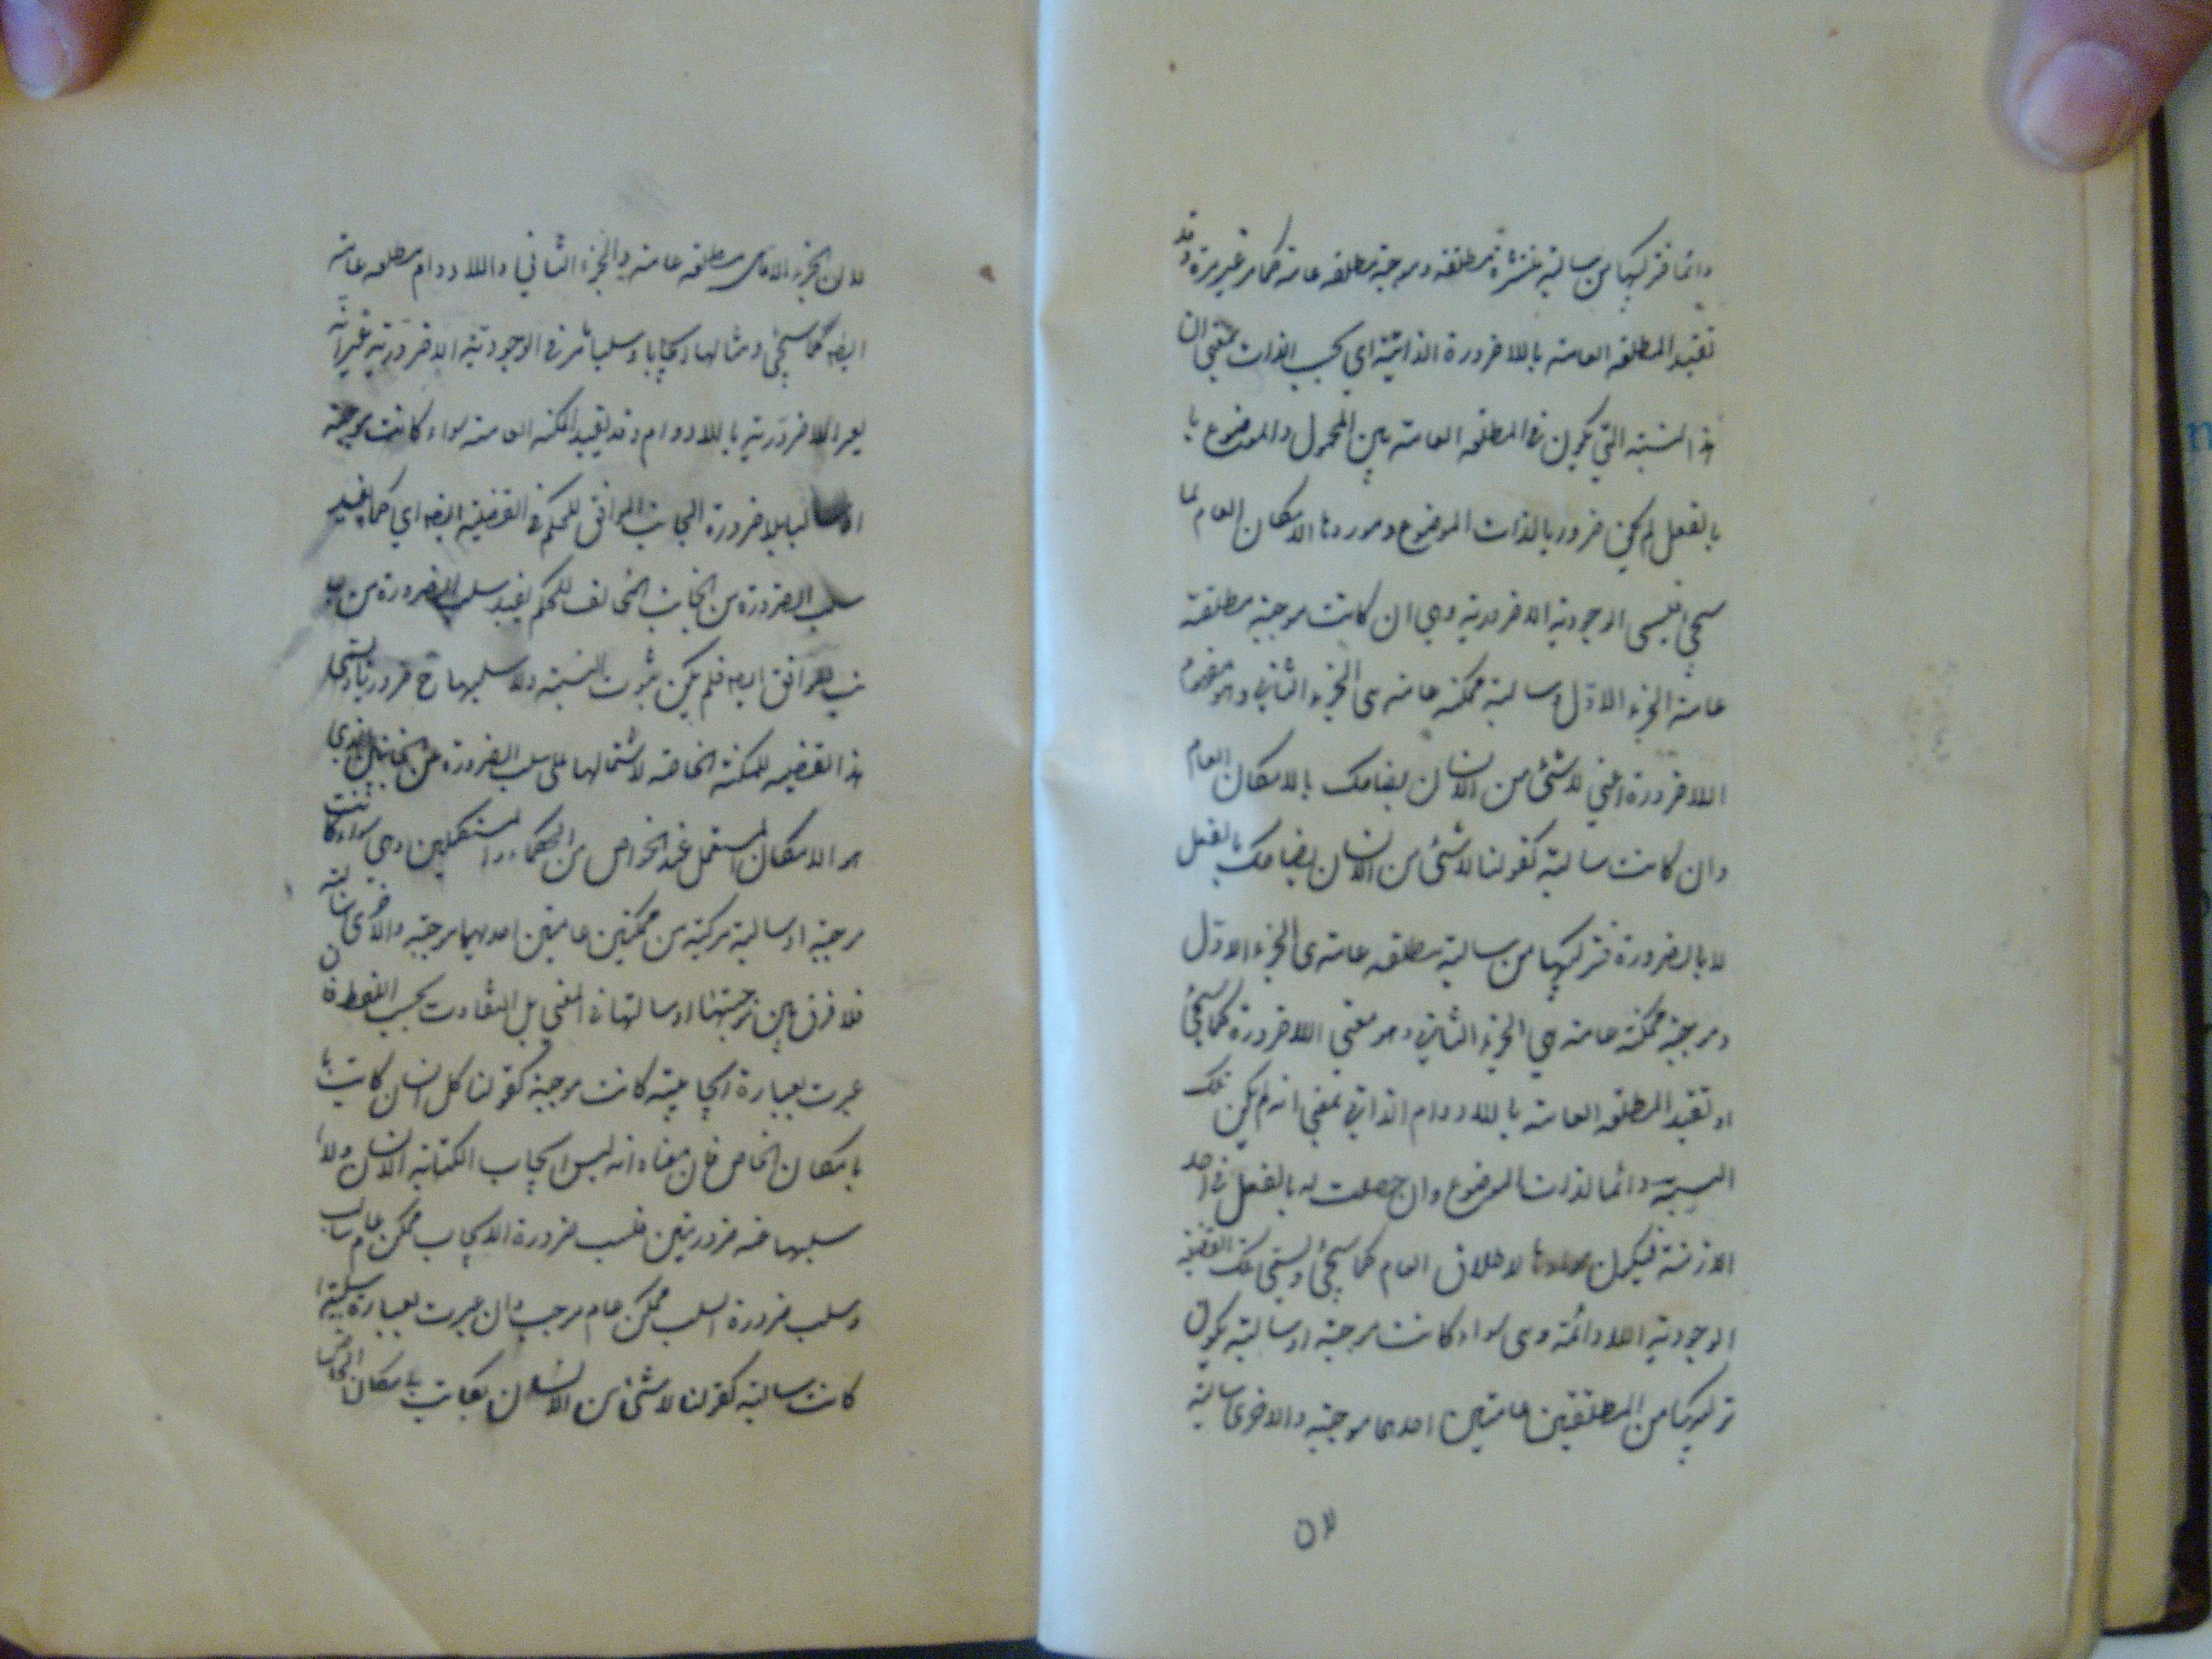 دائما فتركيبها من سالبة منتشرة مطلقة وموجبة مطلقه عامة كما مر غير مرة وقد
تقيد المطلقه العامه باللا ضرورة الذاتية اي بحسب الذات بمعني ان
هذا النسبته التي يكون في المطلقه العامته بين المحمول والموضوع با
بالفعل لم يكن ضروريا لذات الموضوع وموردها الامكان العام لما
سيجئ فيسمى الوجودية اللاضرورية وهي ان كانت موجبة مطلقة
عامته الجزء الاوّل وسالبة ممكنه عامته هى الجزء الثاني وهو مفهوم
اللا ضرورة اعني لا شئ من الانسان بضاحك بالامكان العام
وان كانت سالبة كقولنا لا شئ من الانسان بضاحك بالفعل
لا بالضرورة فتركيبها من سالبة مطلقه عامته هى الجزء الاوّل
وموجبة ممكنة عامته هي الجزء الثاني وهو معني اللا ضرورة كما سيجئ
او تقيد المطلقه العامته باللا دوام الذاتي بمعني انه لم يكن تلك
النسبة دائما لذات الموضوع وان حصلت له بالفعل في احد
الازمنة فيكون لاطلاق العام كما سيجئ ويسمى تلك القضية
الوجودية اللا دائمة وهى سواء كانت موجبة او سالبة يكون
تركيبها من المطلقتين عامتين احدىهما موجبة والاخرى سالبة
لان
لان الجزء الاول مطلقه عامته والجزء الثاني واللا دوام مطلقه عامة
ايضا كما سيجئ ومثالها ايجابا وسلبا مر في الوجودية اللاضرورية غير انه
اللاضرورية باللا دوام وقد يقيد الممكنه العامته سواء كانت موجبة
او سالبا بلا ضرورة الجانب الموافق للحكم في القضية ايضا اي كما يقيد
سلب الضرورة من الجانب المخالف للحكم يقيد سلب الضرورة من
نب الموافق ايضا فلم يكن ثبوت النسبته ولا سلبها ح ضروريا ويسمى
هذا القضيه الممكنة الخاصه لاشتمالها على سلب الضرورة عن الجانبين الذي
هو الامكان المستعمل عند الخواص من الحكماء و المتكلمين وهي سواء كانت
موجبة او سالبة مركبة من ممكنتين عامتين احديهما موجبة والاخرى سالبة
فلا فرق بين موجبتها او سالبتها في المعني بل التفاوت بحسب اللفظ فان
عبرت بعبارة ايجابية كانت موجبة كقولنا كل انسان كاتب
بامكان الخاص فان معناه انه ليس ايجاب الكتابة الانسان ولا
سلبها عنه ضروريتين فسلب ضرورة الايجاب ممكن عام سالب
وسلب ضرورة السلب ممكن عام موجب وان عبرت بعبارة سلبية
كانت سالبة كقولنا لا شئ من الانسان بكاتب بامكان الخاص